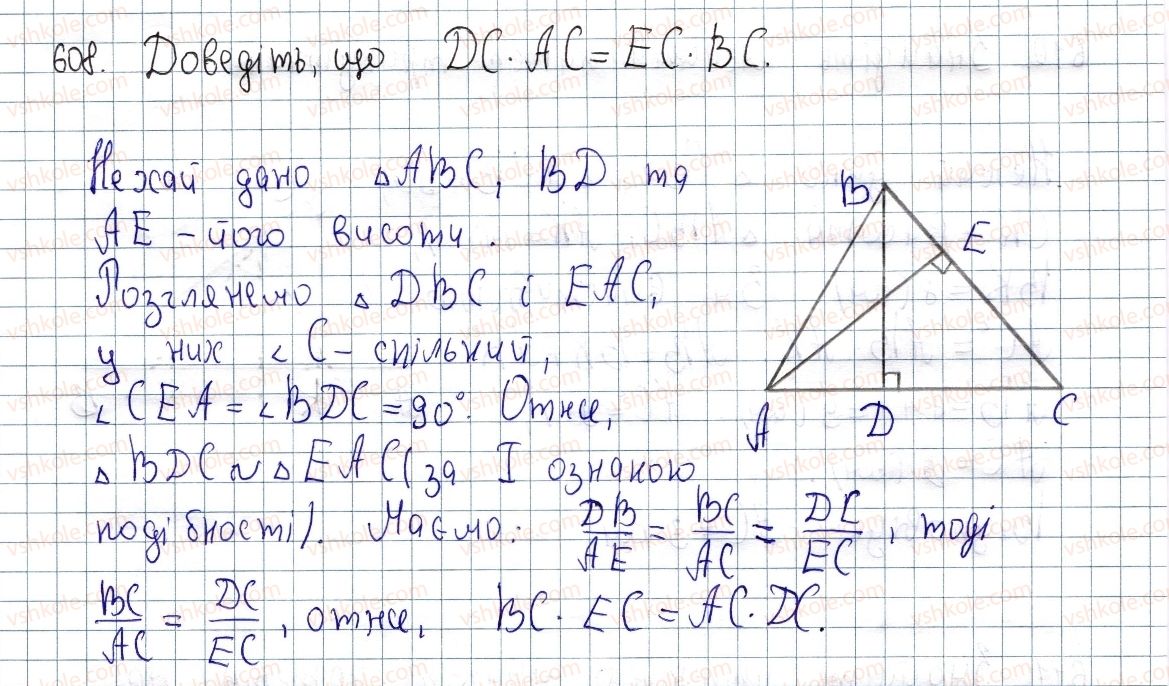 608. Доведіть, що DC · AC = EC · BC.
Нехай дано △ABC, BD та
AE – його висоти.
Розглянемо △ DBC і EAC,
у них ∠C – спільний,
∠CEA = ∠BDC = 90°. Отже,
△BDC ∾ △EAC (за I ознакою
подібності). Маємо: DB/AE = BC/AC = DC/EC, тоді
BC/AC = DC/EC, отже, BC · EC = AC · DC.
B
E
A
D
C